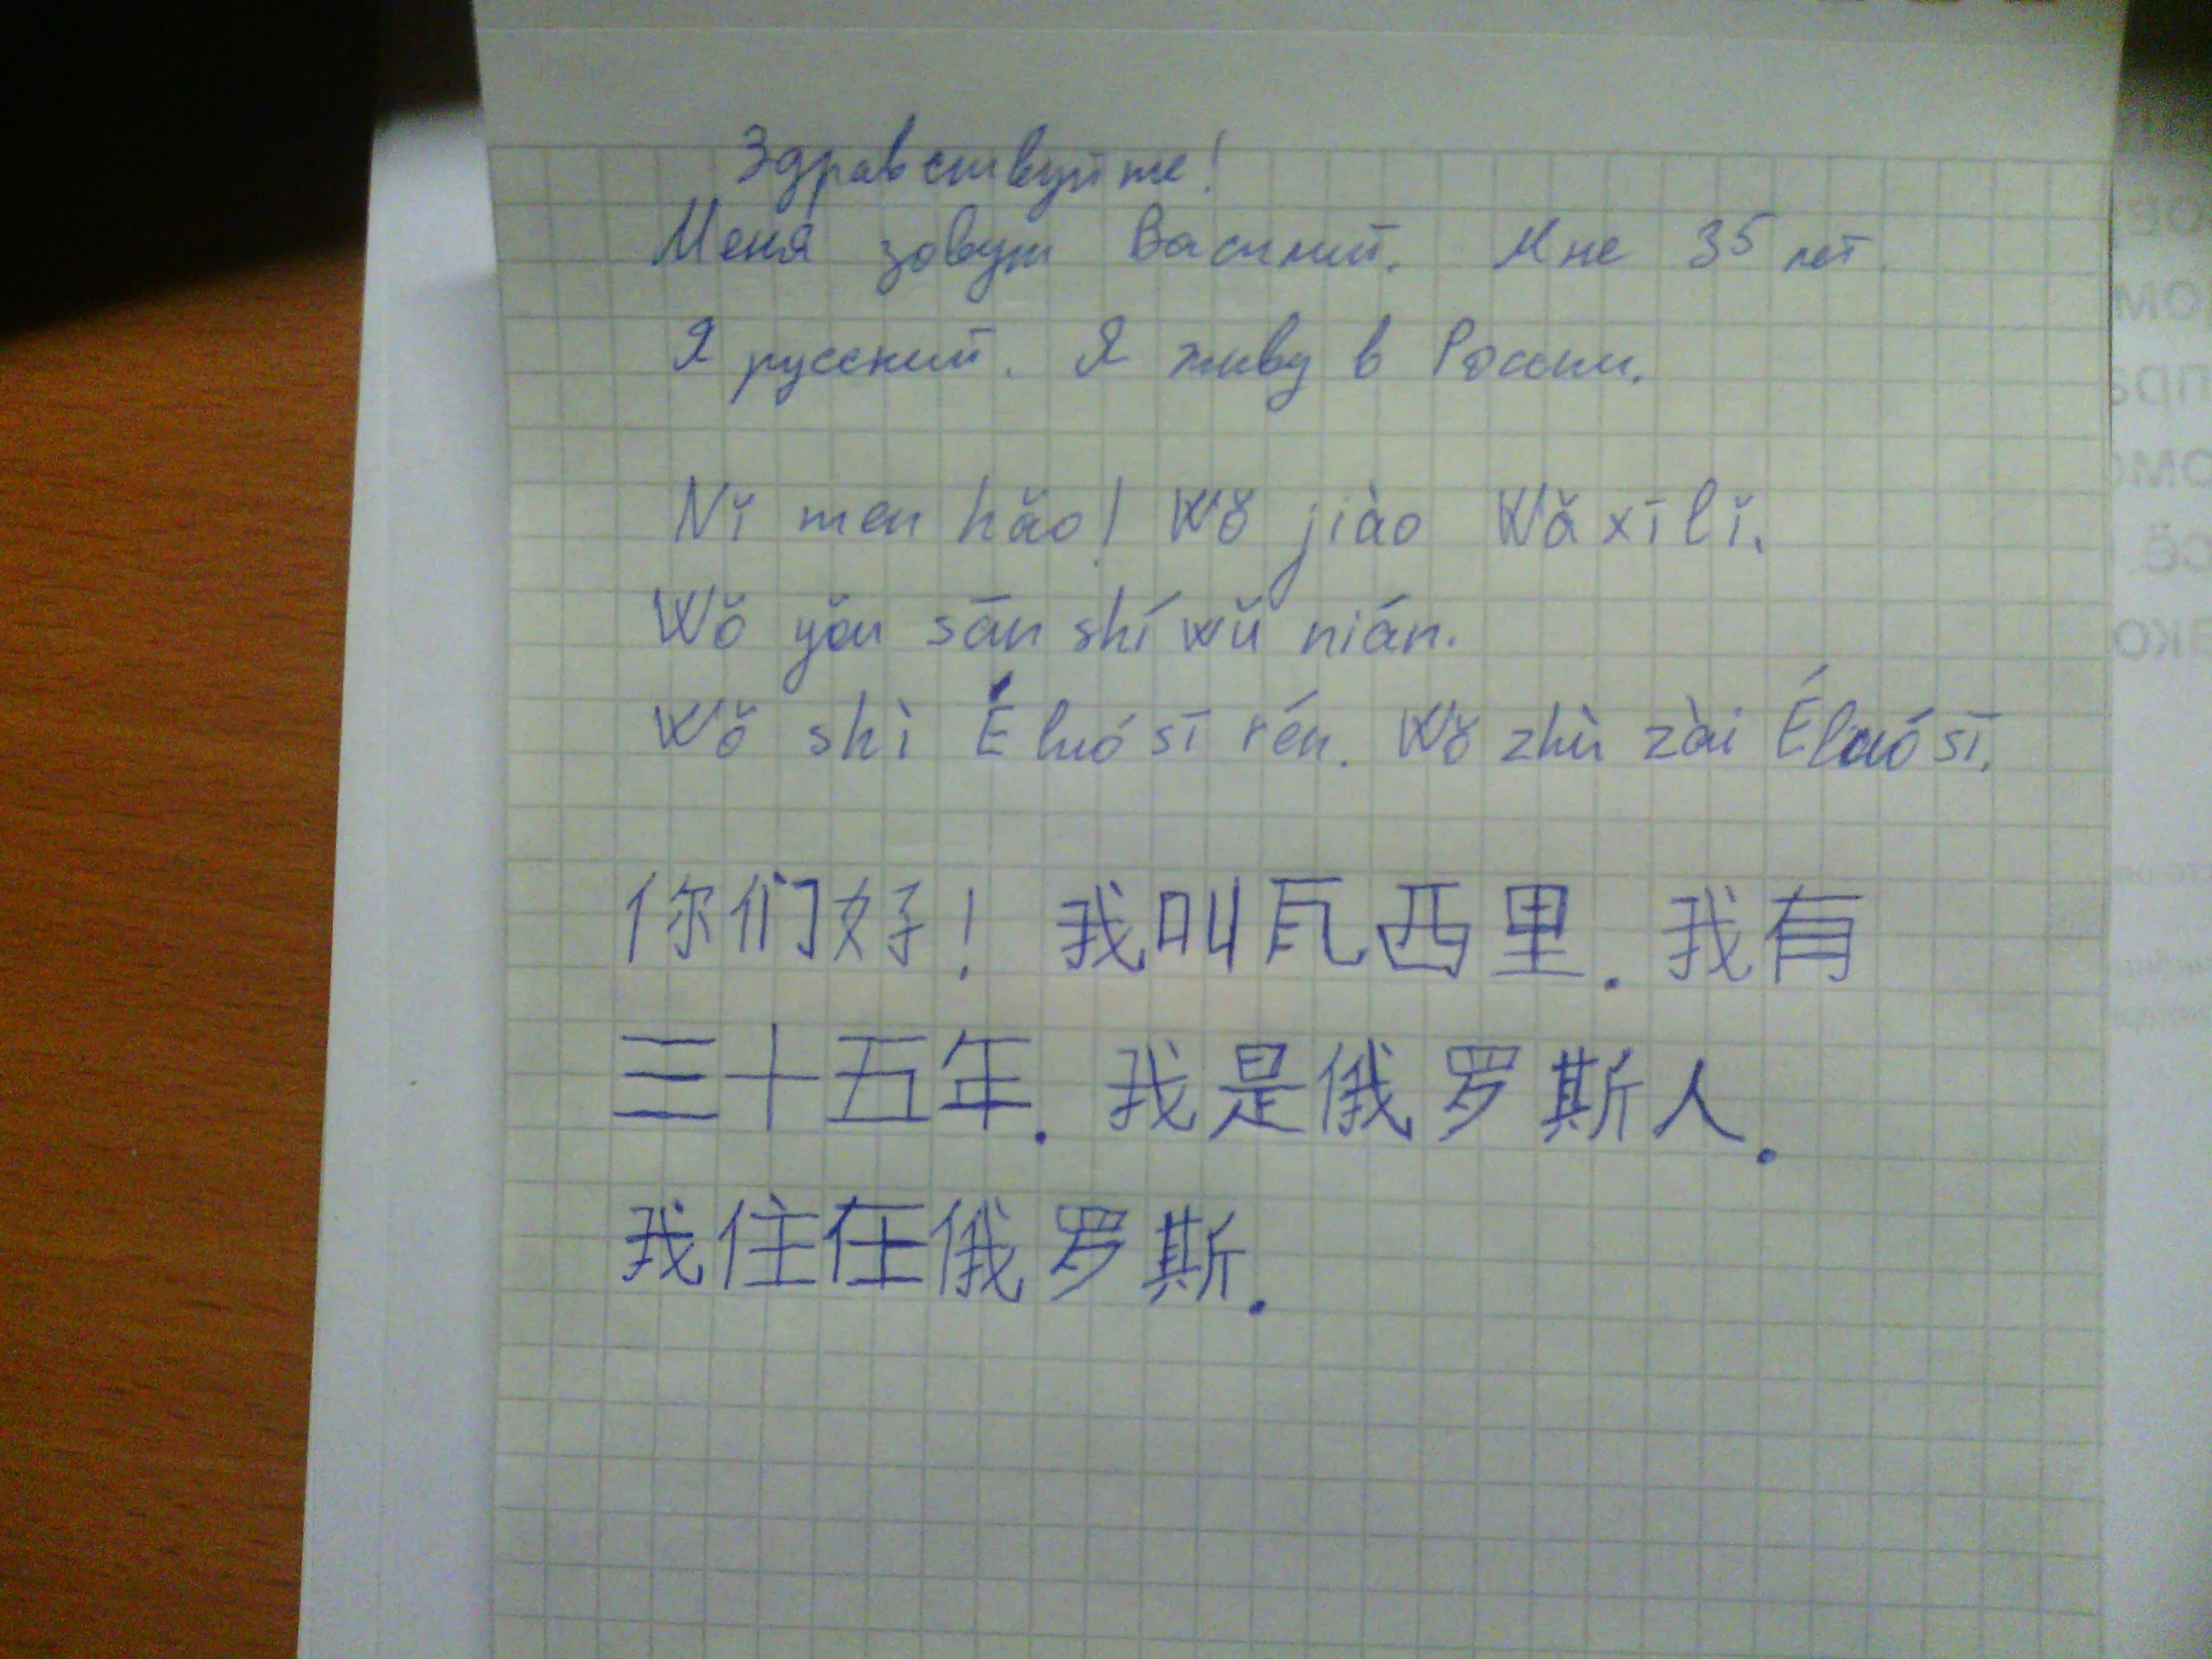 Здравствуйте!
Меня зовут Василий. Мне 35 лет.
Я русский. Я живу в России.
Nǐ men hǎo! Wǒ jiào Wǎ xī lǐ.
Wǒ yǒu sān shí wǔ nián.
Wǒ shì É luó sī rén. Wǒ zhù zài Éluó sī.
你们好! 我叫瓦西里. 我有
三十五年. 我是俄罗斯人.
我住在俄罗斯.